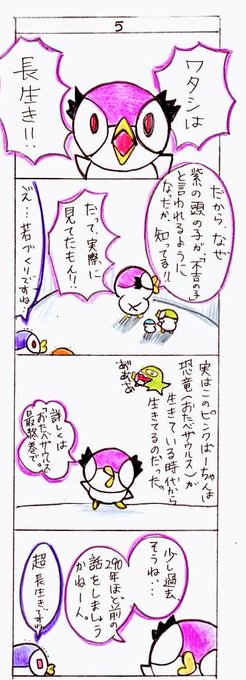 5
ワタシは
長生き!!
だから、なぜ
紫の頭の子が「不吉の子」
と言われるように
なだか、知ってる!!
だって、実際に
見てたもん!!
え…若づくりですね…
実はこのピンクばーちゃんは
恐竜(おたべザウルス)が
生きている時代から
生きてるのだった。
あぁあぁ
詳しくは
『おたべザウルス』
最終巻で。
少し過去
そうね…
290年ほど前の
話をしましょう
かねー人。
超長生きですね